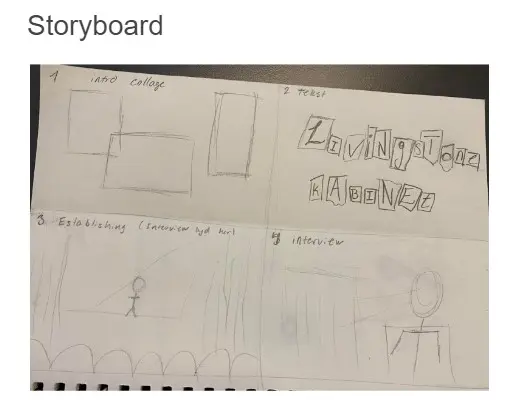 Storyboard
1 intro collage
2 Tekst
Livingstonz
KABINEt
3. Establishing (Interview lyd her)
4 interview